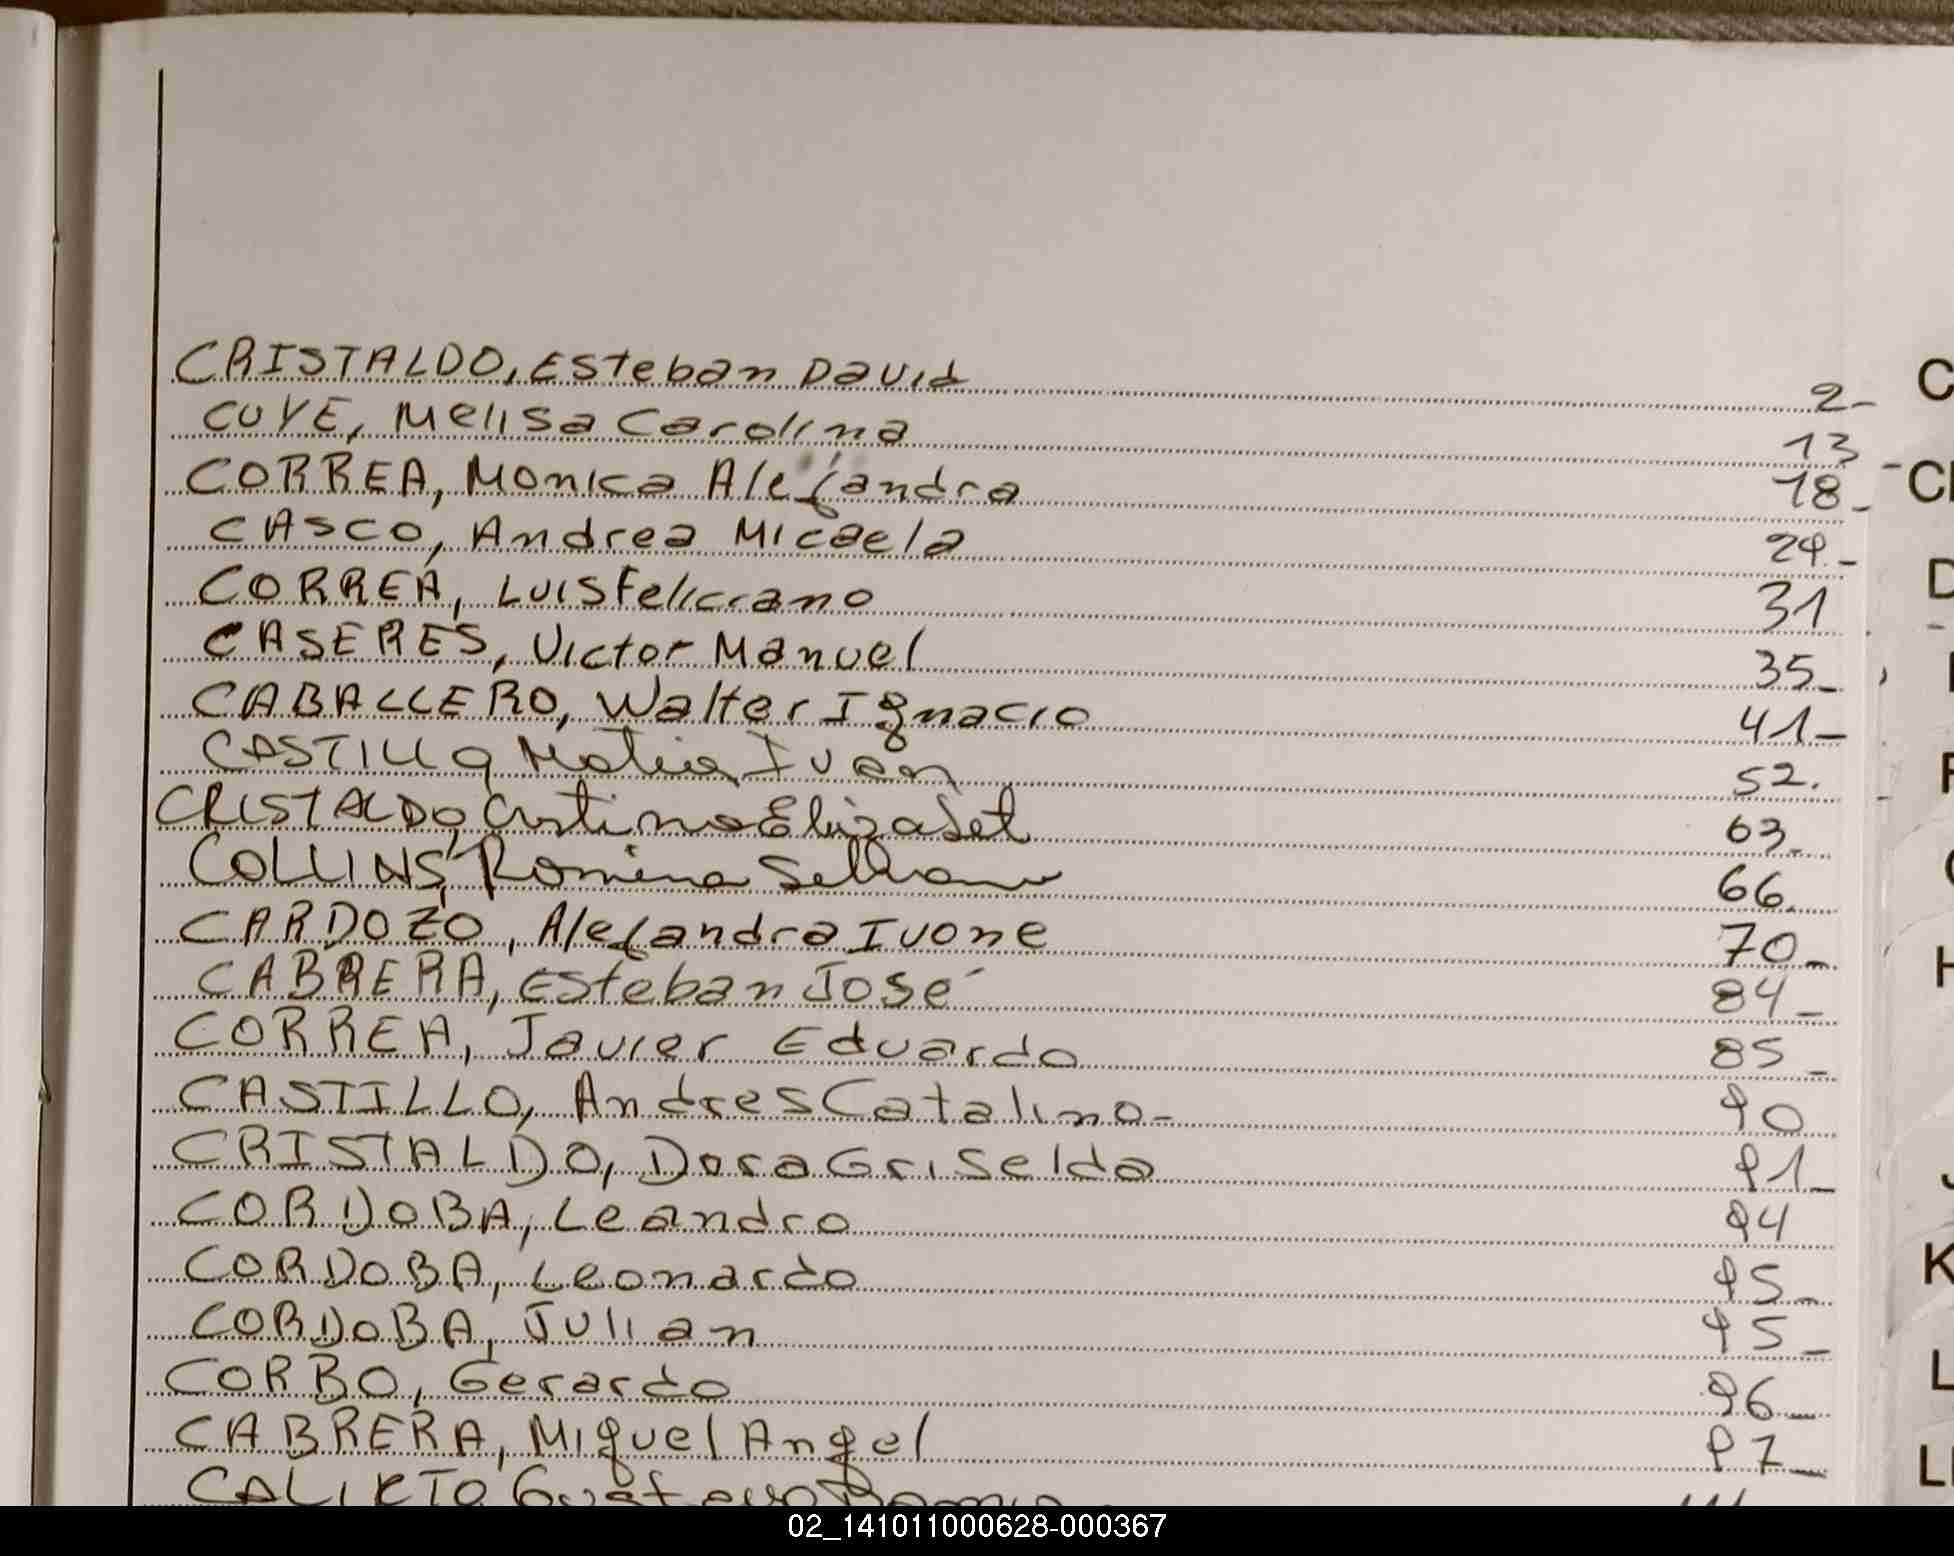 CRISTALDO, Esteban David 2-
CUYE, Melisa Carolina 13
CORREA, Monica Alejandra 18-
CASCO, Andrea Micaela 29.-
CORREA, Luis Feliciano 31
CASERES, Victor Manuel 35-
CABALLERO, Walter Ignacio 41-
CASTILLO Matia Ivan 52.
CRISTALDO, Cristina Elizabet 63.-
COLLINS, Romina 66.
CARDOZO, Alejandra Ivone 70-
CABRERA, Esteban José 84-
CORREA, Javier Eduardo 85-
CASTILLO, Andres Catalino- 90
CRISTALDO, Dora Griselda 91-
CORDOBA, Leandro 94
CORDOBA, Leonardo 95-
CORDOBA, Julian 95-
CORBO, Gerardo 96-
CABRERA, Miguel Angel 97-
Gustavo
C
D
H
K
L
02_141011000628-000367